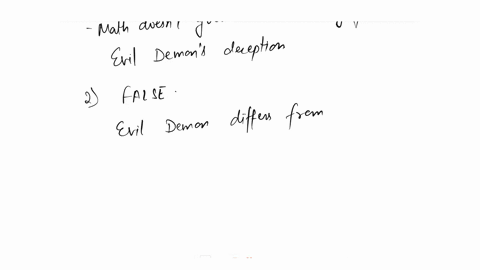 - Math doesn't
Evil Demon's deception
2) FALSE.
Evil Demon differs from